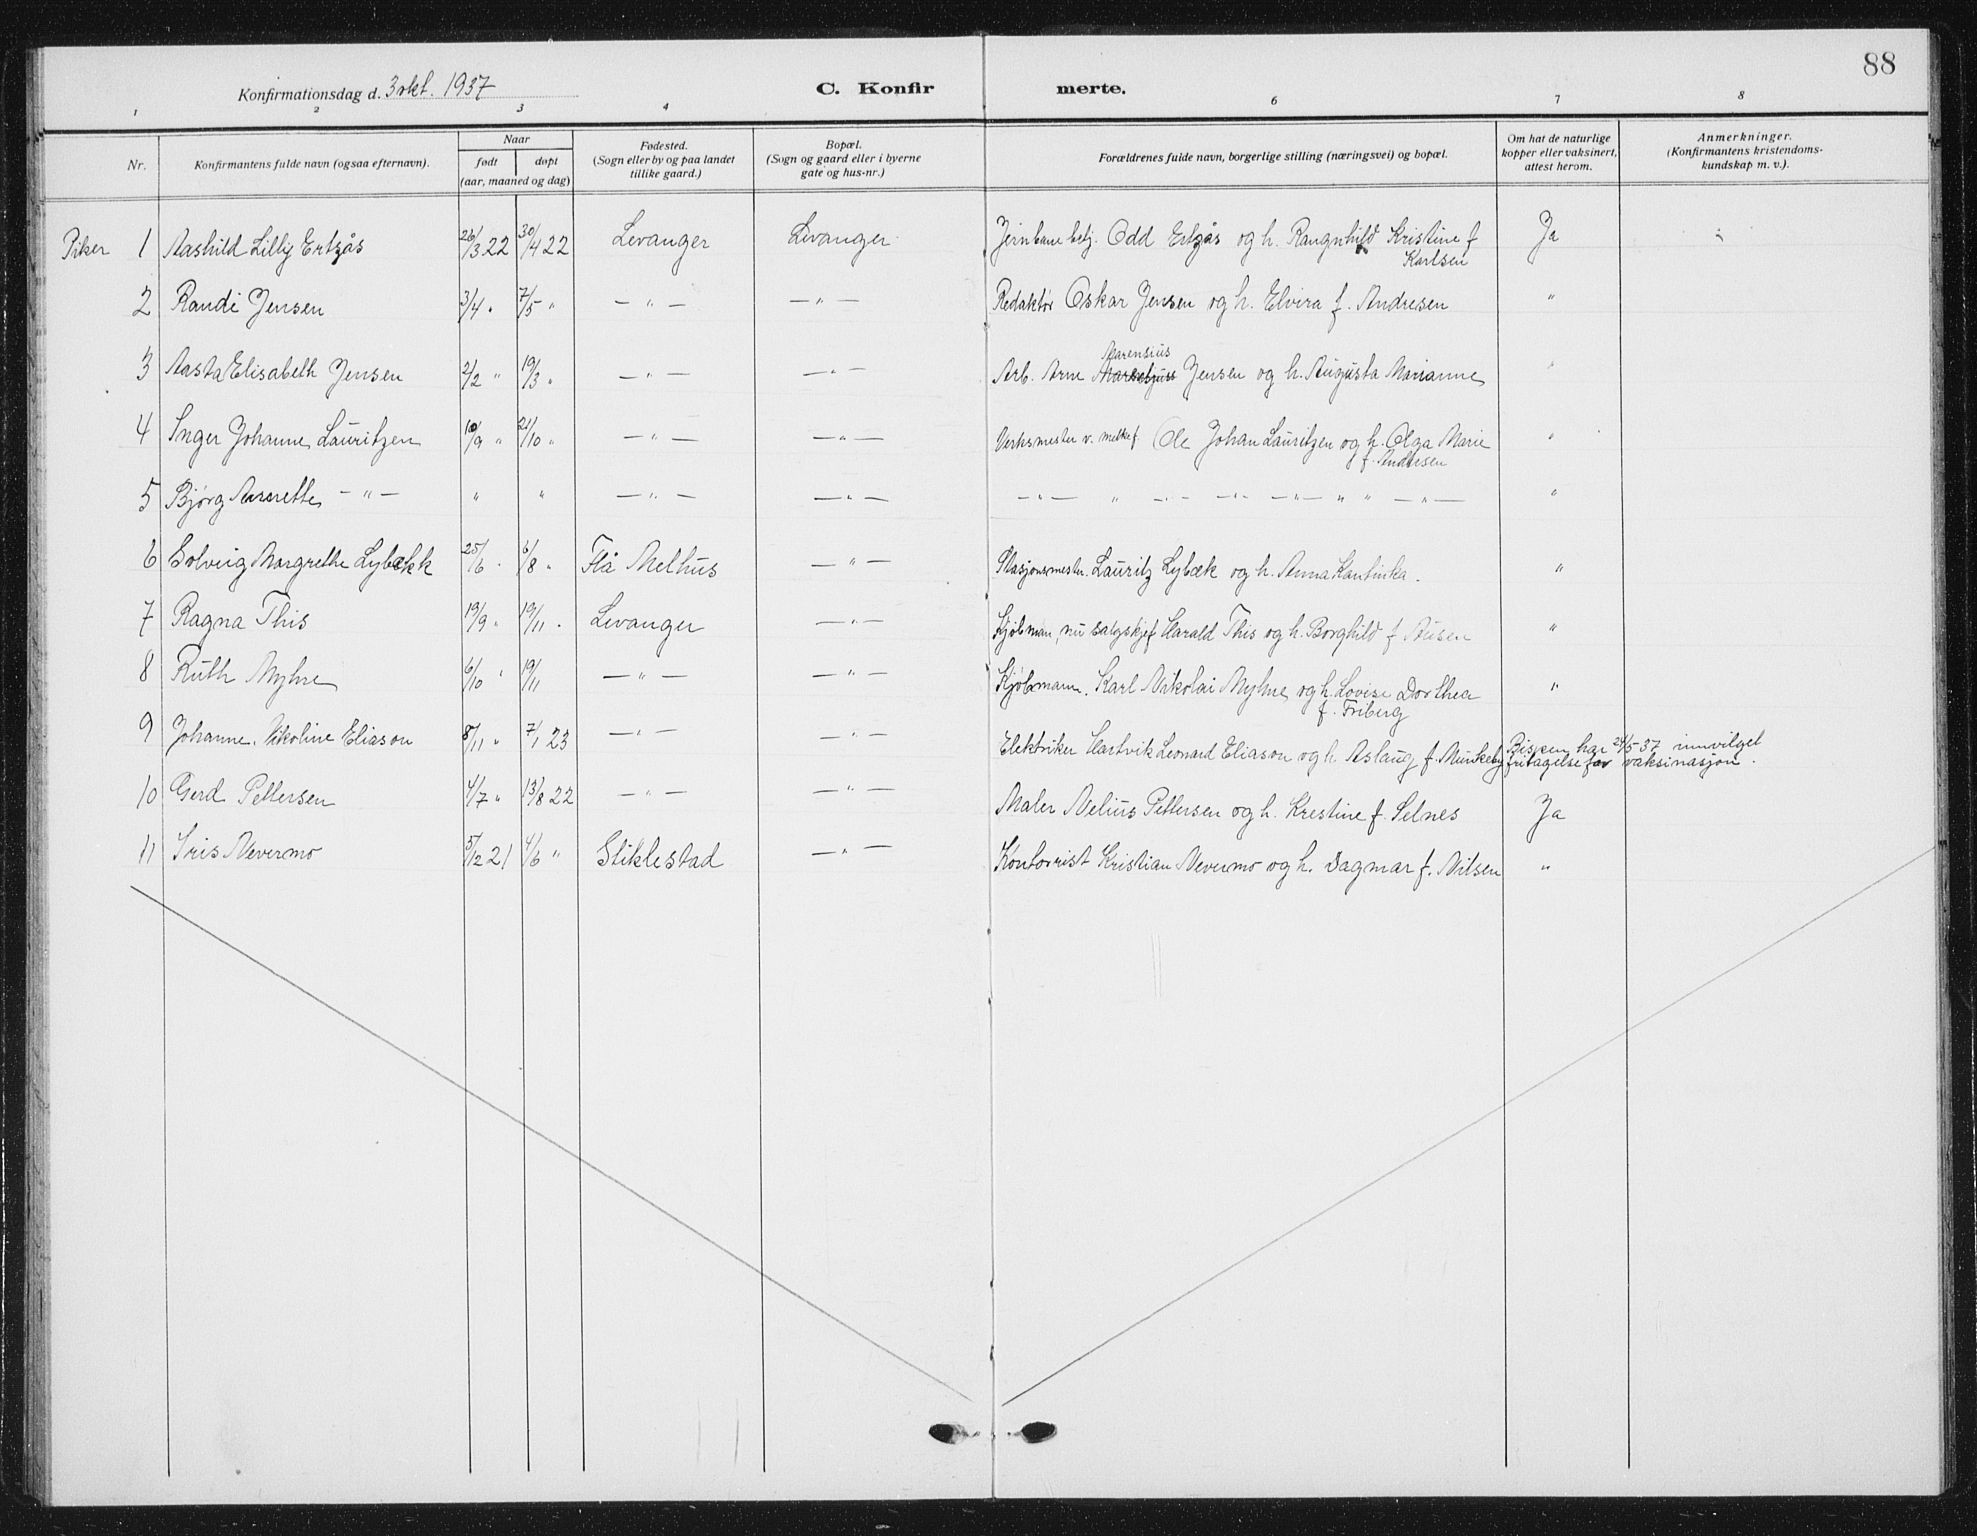 88
Konfirmationsdag d. 3 okt. 1937
C. Konfirmerte.
1 2 3 4 6 7 8
Nr. Konfirmantens fulde navn (ogsaa efternavn). Naar født døpt (aar, maaned og dag) Fødested. (Sogn eller by og paa landet tillike gaard.) Bopæl. (Sogn og gaard eller i byerne gate og hus-nr.) Forældrenes fulde navn, borgerlige stilling (næringsvei) og bopæl. Om hat de naturlige kopper eller vaksinert, attest herom. Anmerkninger. (Konfirmantens kristendomskundskap m. v.).
Piker 1 Aashild Lilly Ertzås 26/3 22 30/4 22 Levanger Levanger Jernbanebetj. Odd Ertzås og h. Rangnhild Kristine f Karlsen Ja
2 Randi Jensen 3/4 " 7/5 " — " — — " — Redaktør Oskar Jensen og h. Elvira f. Andresen "
3 Aasta Elisabeth Jensen 2/2 " 19/3 " — " — — " — Arb. Arne Marensius Jensen og h. Augusta Marianne "
4 Inger Johanne Lauritzen 10/9 " 21/10 " — " — — " — Verksmester v. Ole Johan Lauritzen og h. Olga Marie f. Andresen "
5 Bjørg Annette — " — " " — " — — " — — " — " — " — — " — — " — " " — " — "
6 Solveig Margrethe Lybækk 25/6 " 6/8 " Flå Melhus — " — Stasjonsmester. Lauritz Lybæk og h. Anna Kantinka. "
7 Ragna This 19/9 " 19/11 " Levanger — " — Kjøbman, nu salgskjef Harald This og h. Borghild f. Ausen "
8 Ruth Myhre 6/10 " 19/11 — " — — " — Kjøbmann. Karl Nikolai Myhre og h. Lovise Dorthea f. Friberg "
9 Johanne. Nikoline Eliason 8/11 " 7/1 23 — " — — " — Elektriker Hartvik Leonard Eliason og h Aslaug f. Munkeby Bispen har 24/5-37 innvilget fritagelse for vaksinasjon.
10 Gerd Pettersen 4/7 " 13/8 22 — " — — " — Maler Nelius Pettersen og h. Krestine f. Selnes Ja
11 Iris Nevermo 5/12 21 4/6 " Stiklestad — " — Kontorist Kristian Nevermo og h. Dagmar f. Nilsen "